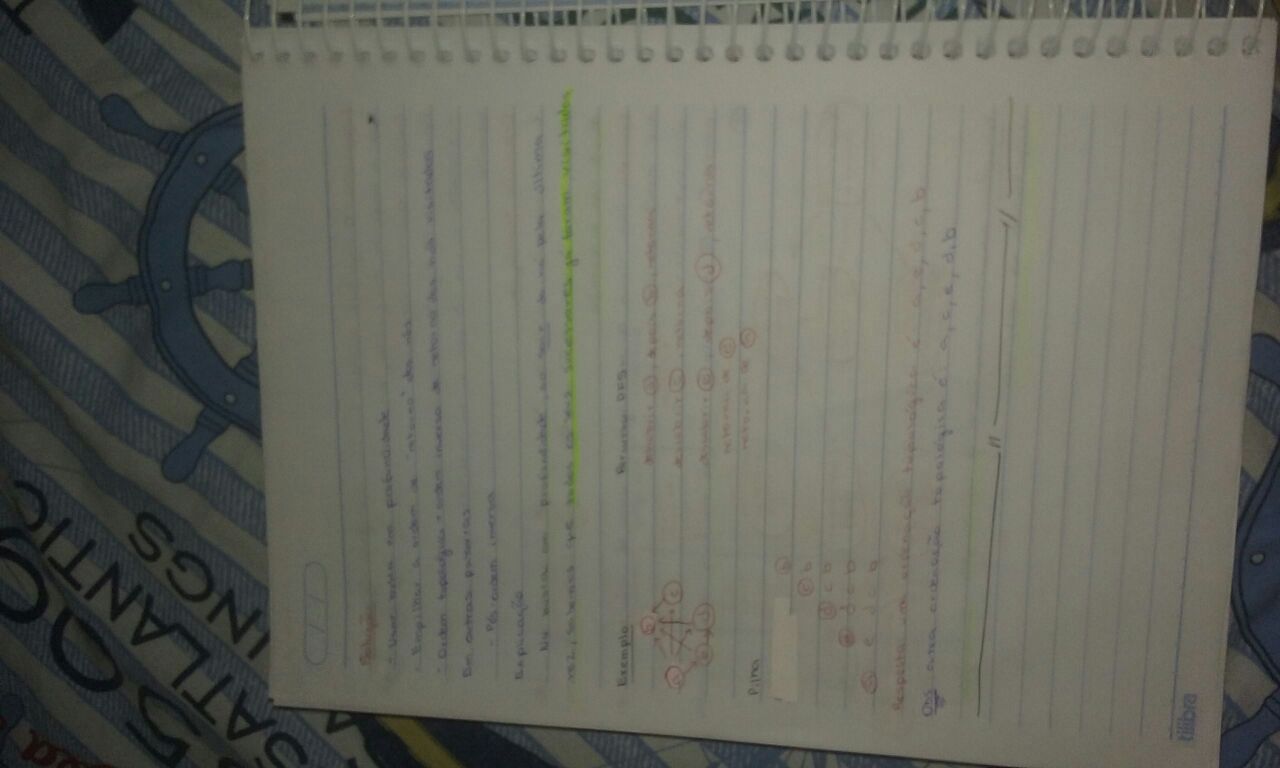 590
SATLANTIC
INGS
Solução
- Usar busca em profundidade
- Empilhar a ordem de "retorno" dos nós
- Ordem topológica = ordem inversa de retorno dos nós visitados
Em outras palavras
- Pós-ordem inversa
Explicação
Na busca em profundidade, ao sair do nó pela última
vez, sabemos que todos os seus sucessores já foram visitados
Exemplo
Percurso DFS:
b
a c
e d
descobrir a, depois b, retorna
descobrir c, retorna
descobrir e, depois d, retorna
retorna de
retorna de
Pilha
b
c b
d c b
e d c b
a e d c b
Resposta: uma ordenação topológica é: a, e, d, c, b
Obs outra ordenação topológica é: a, c, e, d, b
tilibra